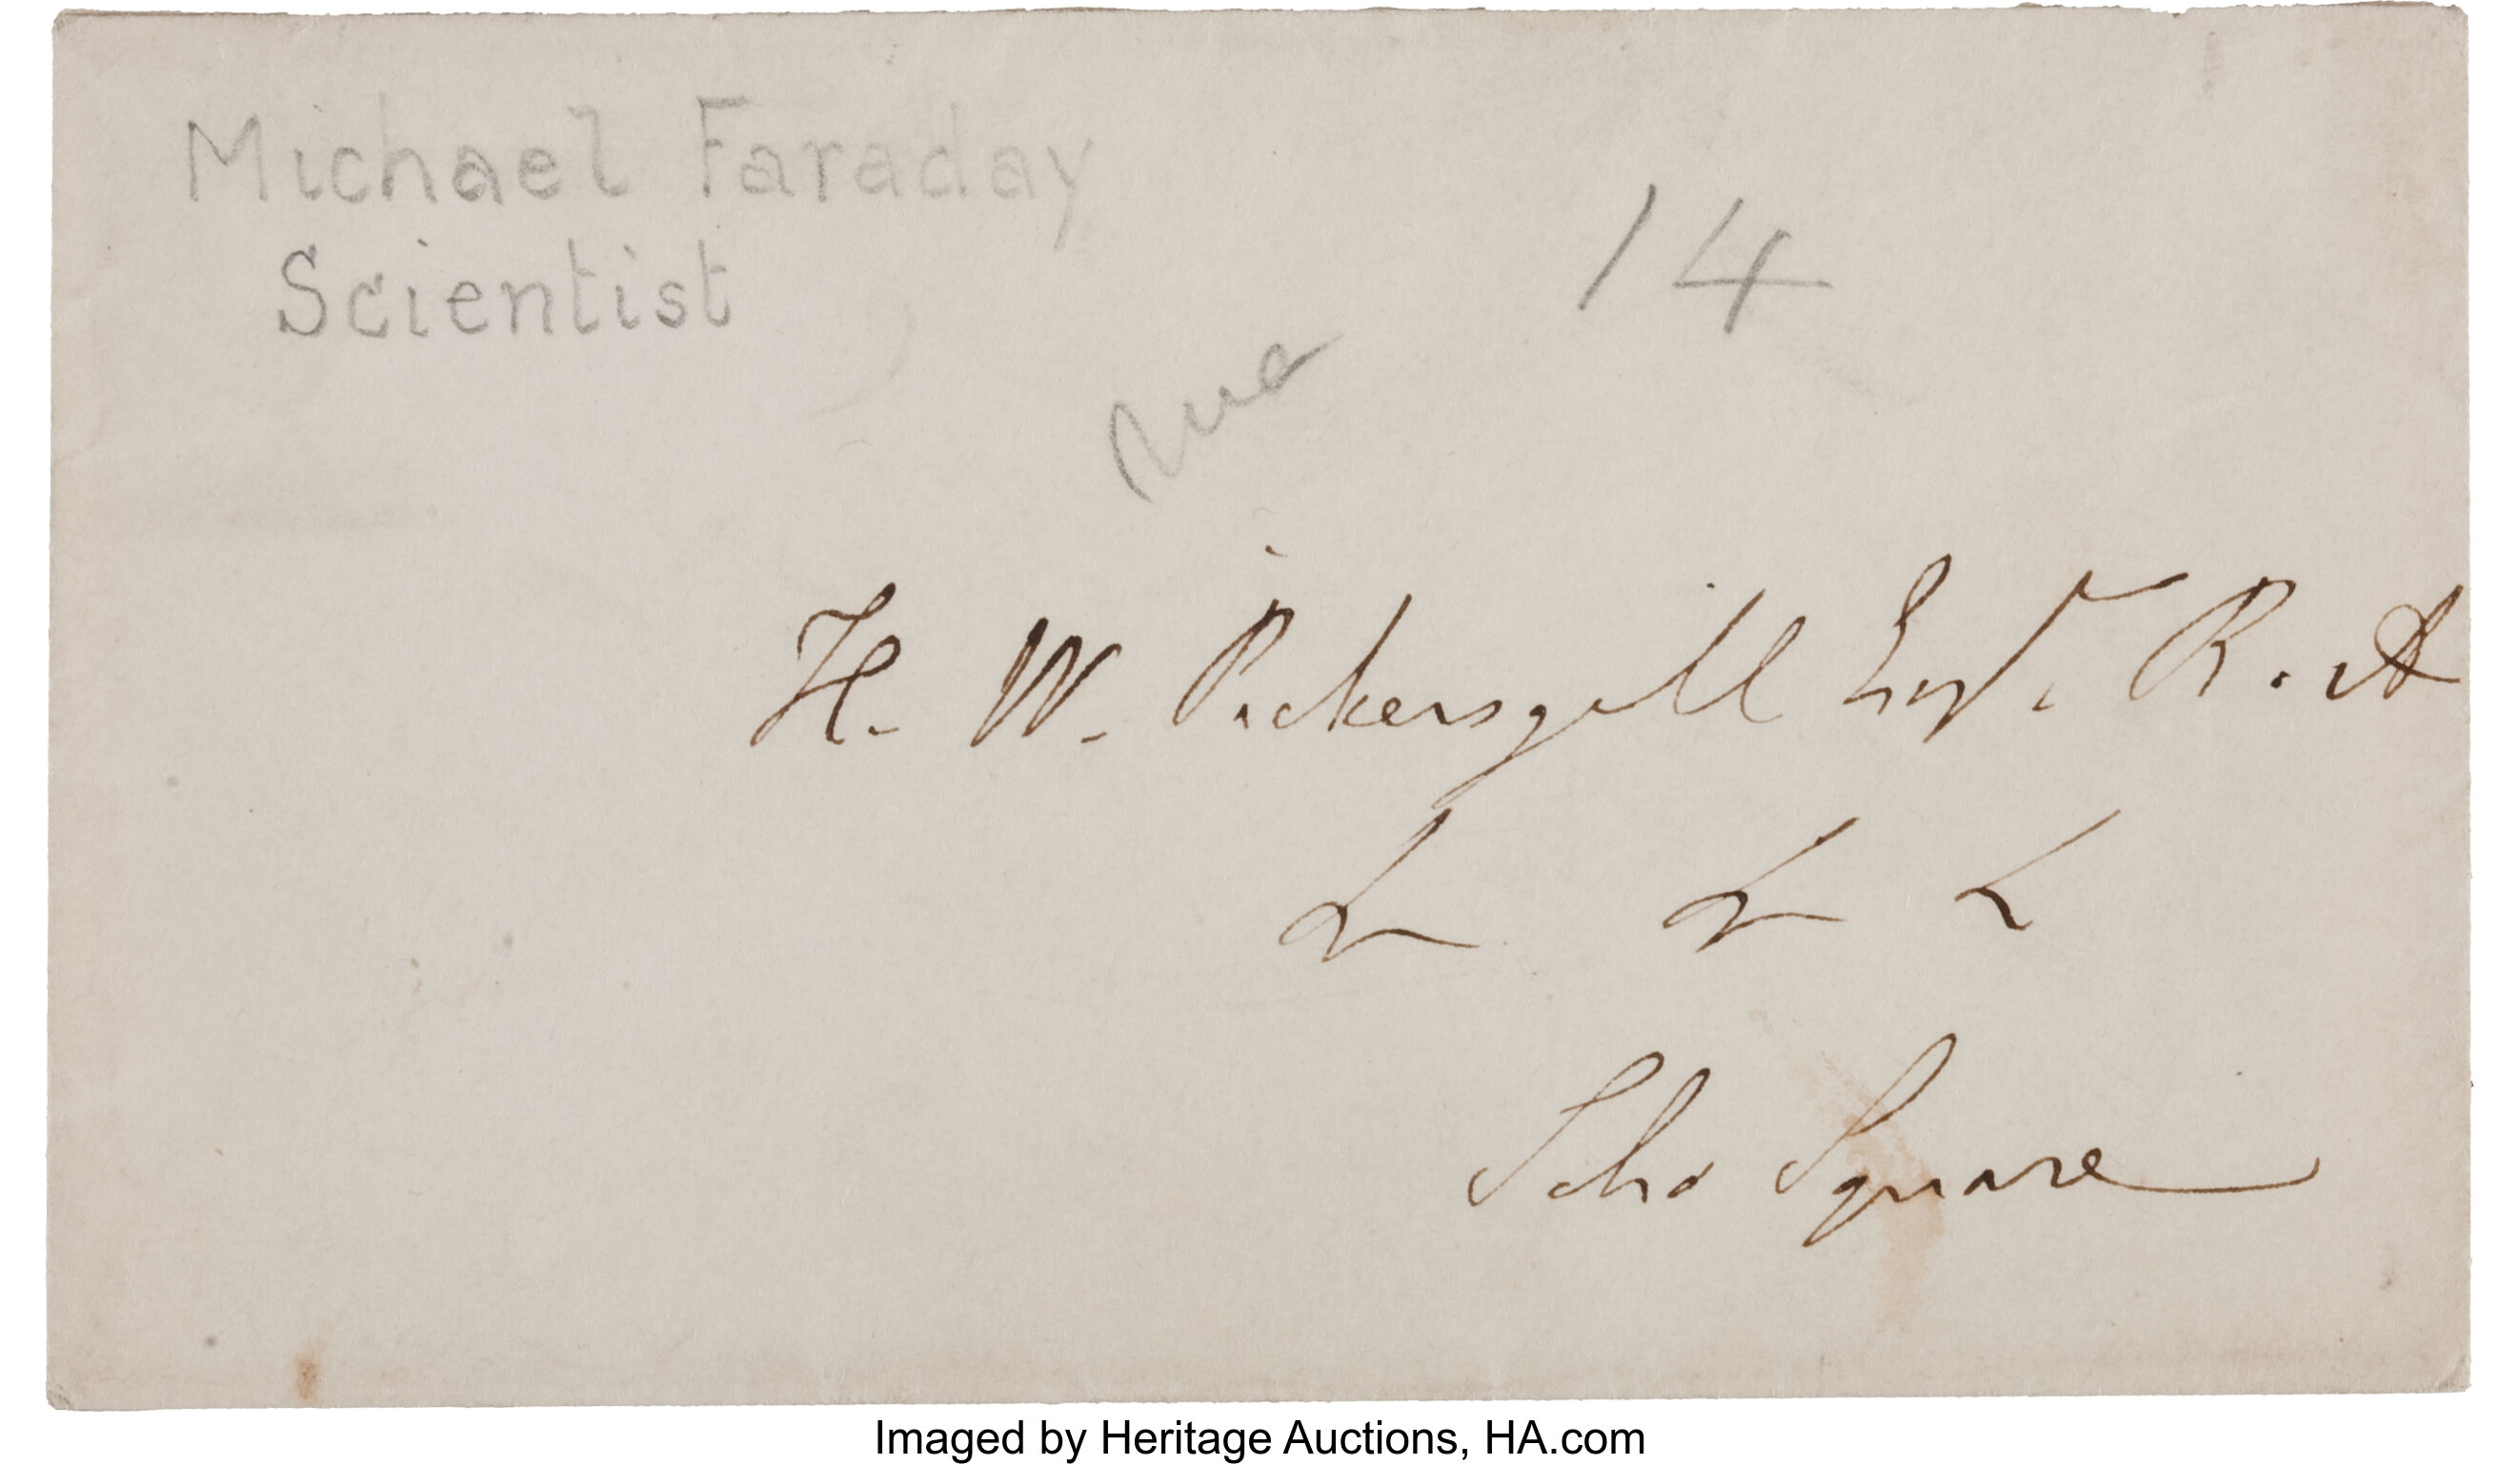 Michael Faraday
Scientist
14
H. W. Pickersgill Esqr. R. A
&c &c &c
Soho Square
Imaged by Heritage Auctions, HA.com